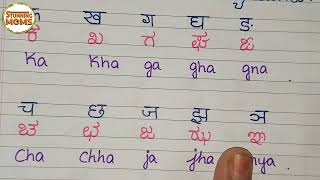 STUNNING MOMS
क ख ग घ ङ
ಕ ಖ ಗ ಘ ಙ
Ka Kha ga gha gna
च छ ज झ ञ
ಚ ಛ ಜ ಝ ಞ
Cha chha ja jha nya